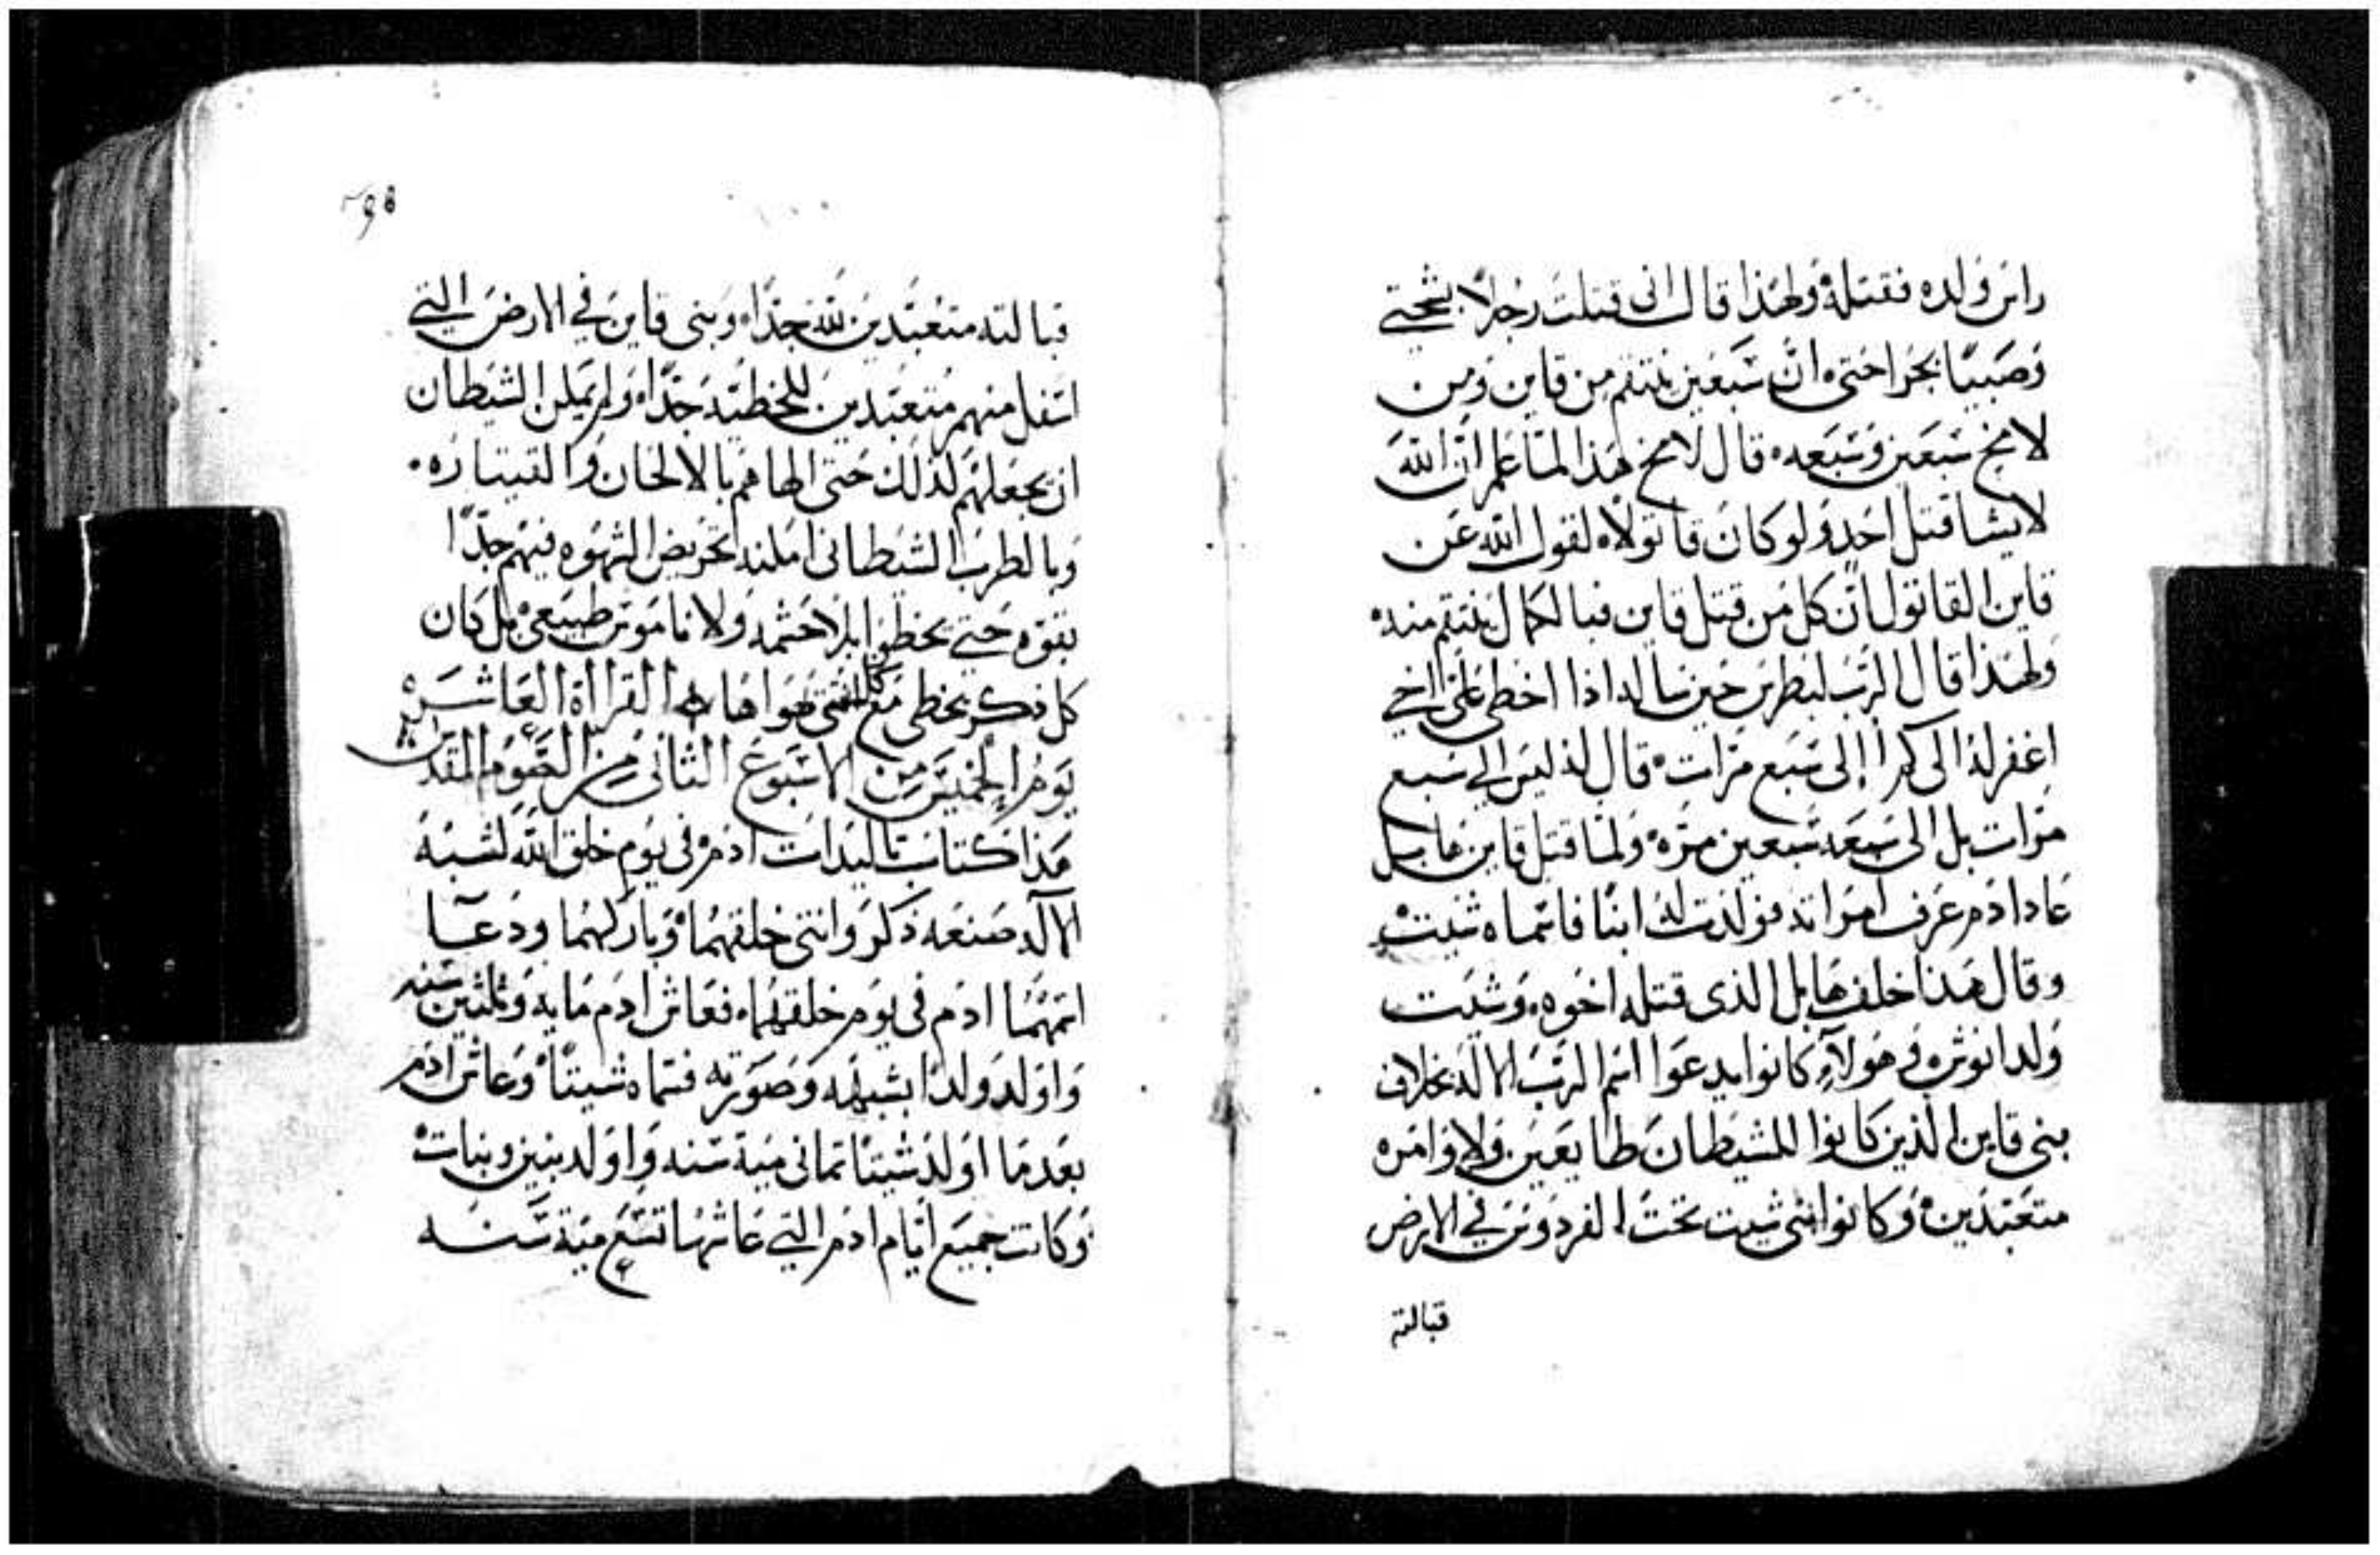 راس ولده فقتله ولهذا قال انى قتلت رجلا بشجتي
وصبيا بجراحتى ان سبعين ينتقم من قاين ومن
لامخ سبعين وسبعه قال لامخ هذا لما علم ان الله
لا يشا قتل احد ولو كان قاتولا لقول الله عن
قاين القاتول ان كل من قتل قاين فبالحمال ينتقم منه
ولهذا قال الرب لبطرس حين ساله اذا اخطى على اخي
اغفر له الى كم االى سبع مرات قال له ليس الي سبع
مرات بل الى سبعه سبعين مره ولما قتل قاين هابيل
عاد ادم عرف امراته فولدت له ابنا فاسماه شيت
وقال هذا خلف هابل الذى قتله اخوه وشيت
ولد انوش وهولآء كانوا يدعوا اسم الرب الاله بخلاف
بنى قاين الذين كانوا للشيطان طايعين ولاوامره
متعبدين وكانوا بنى شيت تحت الفردوس في الارض
قبالته
قبالته متعبدين لله جدا وبنى قاين في الارض التي
اسفل منهم متعبدين للخطيه جدا ولم يمكن الشيطان
ان يجعلهم لذلك حتى الهاهم بالالحان والقيتاره
وبالطرب الشيطانى امكنه تحريض الشهوه فيهم جدا
بقوه حتي يخطوا بلا حشمه ولا ناموس طبيعى بل كان
كل ذكر يخطى مع كل انثى هواها القراأة العاشره
يوم الخميس من الاسبوع الثانى من الصوم المقدس
هذا كتاب تاليدات ادم فى يوم خلق الله لشبه
الآله صنعه ذكر وانتى خلقهما وباركهما ودعا
اسمهما ادم فى يوم خلقهما فعاش ادم مايه وثلثين سنه
واولد ولدا بشبهه وصورته فسماه شيتا وعاش ادم
بعدما اولد شيتا تمانى مية سنه واولد بنين وبنات
وكانت جميع ايام ادم التي عاشها تسع مية سنه